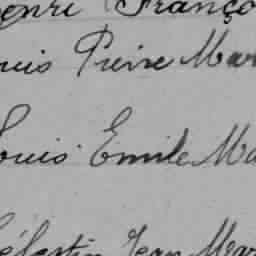 enri Franço
ouis Pierre Mar
Louis Emile Ma
élestin Jean Mar